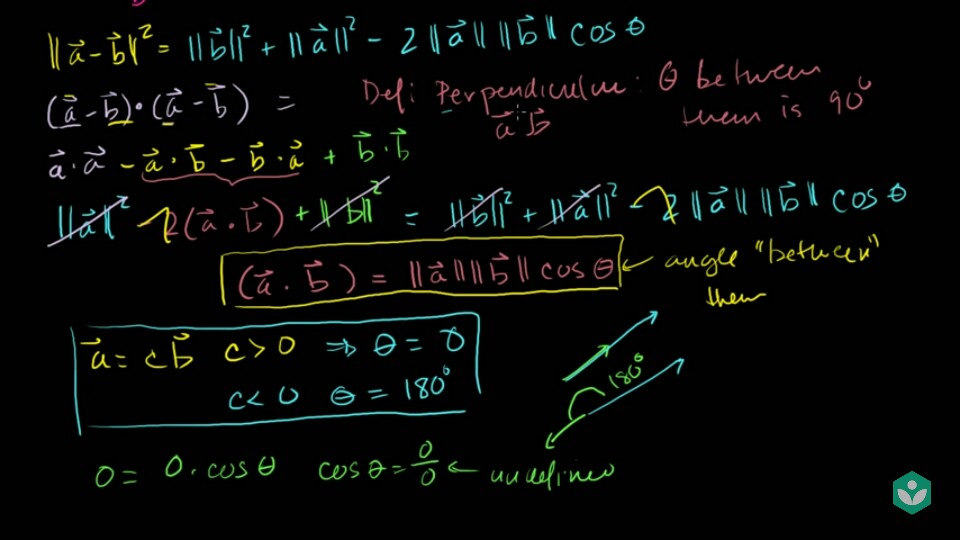 ‖a⃗ - b⃗‖² = ‖b⃗‖² + ‖a⃗‖² - 2‖a⃗‖ ‖b⃗‖ cos θ
(a⃗ - b⃗) · (a⃗ - b⃗) =
Def: Perpendicular: θ between
them is 90°
a⃗ b⃗
a⃗ · a⃗ - a⃗ · b⃗ - b⃗ · a⃗ + b⃗ · b⃗
‖a⃗‖² - 2(a⃗ · b⃗) + ‖b⃗‖² = ‖b⃗‖² + ‖a⃗‖² - 2‖a⃗‖ ‖b⃗‖ cos θ
(a⃗ · b⃗) = ‖a⃗‖‖b⃗‖ cos θ ← angle "between"
them
a⃗ = c b⃗ c > 0 ⇒ θ = 0
c < 0 θ = 180°
180°
0 = 0 · cos θ cos θ = 0/0 ← undefined